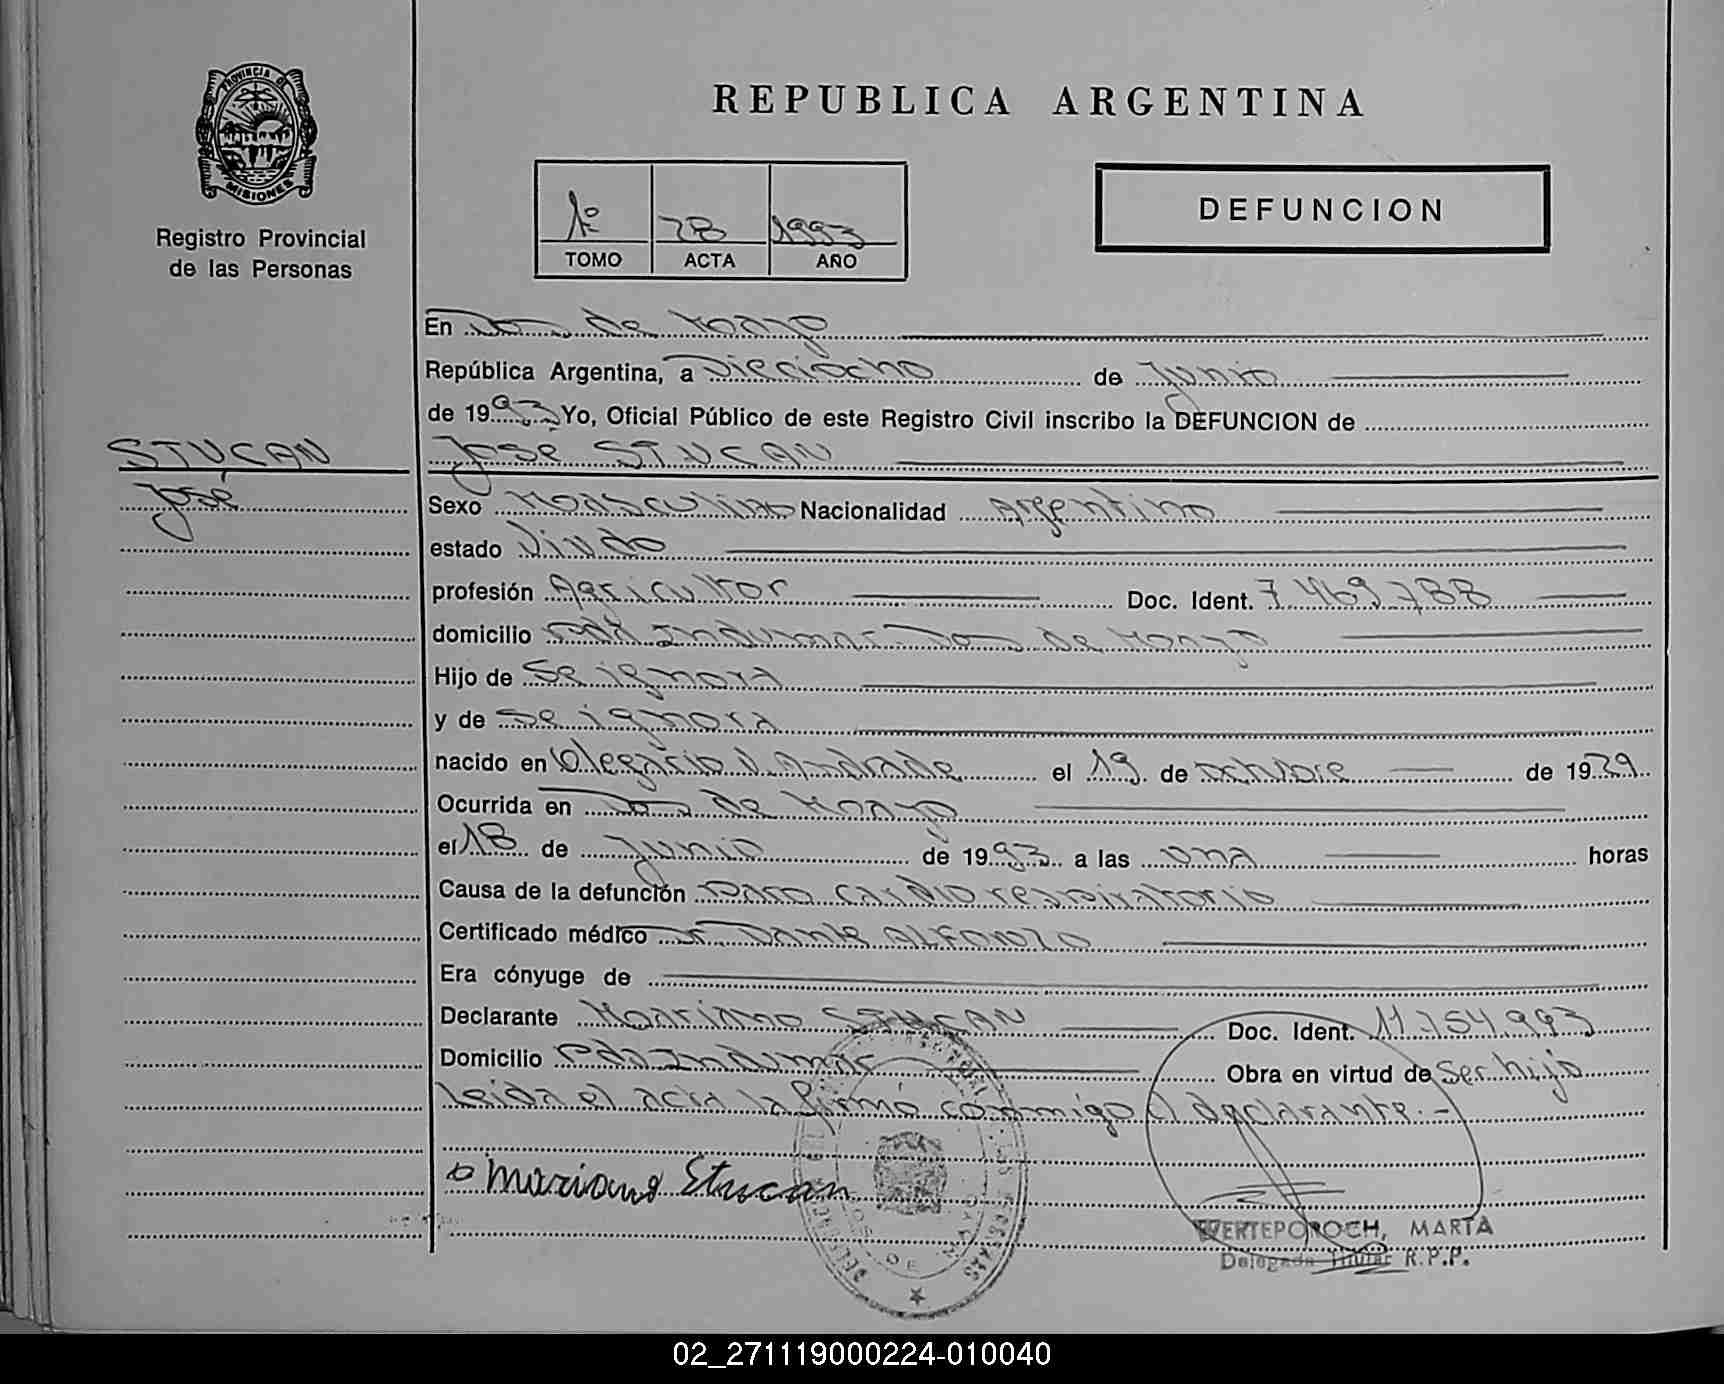 PROVINCIA DE
MISIONES
Registro Provincial
de las Personas
REPUBLICA ARGENTINA
1º 28 1993
TOMO ACTA AÑO
DEFUNCION
En Dos de Mayo
República Argentina, a Dieciocho de Junio
de 1993 Yo, Oficial Público de este Registro Civil inscribo la DEFUNCION de
STUCAN
José
José STUCAN
Sexo Masculino Nacionalidad Argentino
estado Viudo
profesión Agricultor Doc. Ident. 7.469.788
domicilio Indumar Dos de Mayo
Hijo de Se ignora
y de Se ignora
nacido en Olegario V. Andrade el 19 de Octubre de 19
Ocurrida en Dos de Mayo
el 18 de Junio de 1993 a las una horas
Causa de la defunción Paro cardio respiratorio
Certificado médico Dr. Dante ALFONZO
Era cónyuge de
Declarante Mariano STUCAN Doc. Ident. 11.754.993
Domicilio Pdo Indumar Obra en virtud de Ser hijo
leida el acta la firmó conmigo el declarante.-
Mariano Stucan
WERTEPOROCH, MARTA
Delegada Titular R.P.P.
02_271119000224-010040